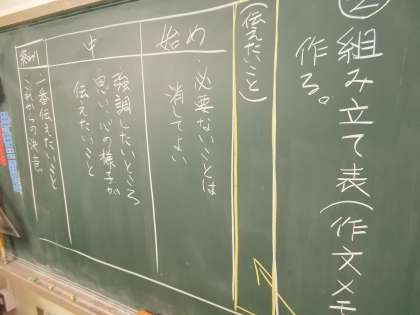 ②組み立て表(作文メモ
作る。
(伝えたいこと)
始め
・必要ないことは
消してよい
中
強調したいところ
思い、心の様子が
伝えたいこと
終わり
一番伝えたいこと
これからの決意